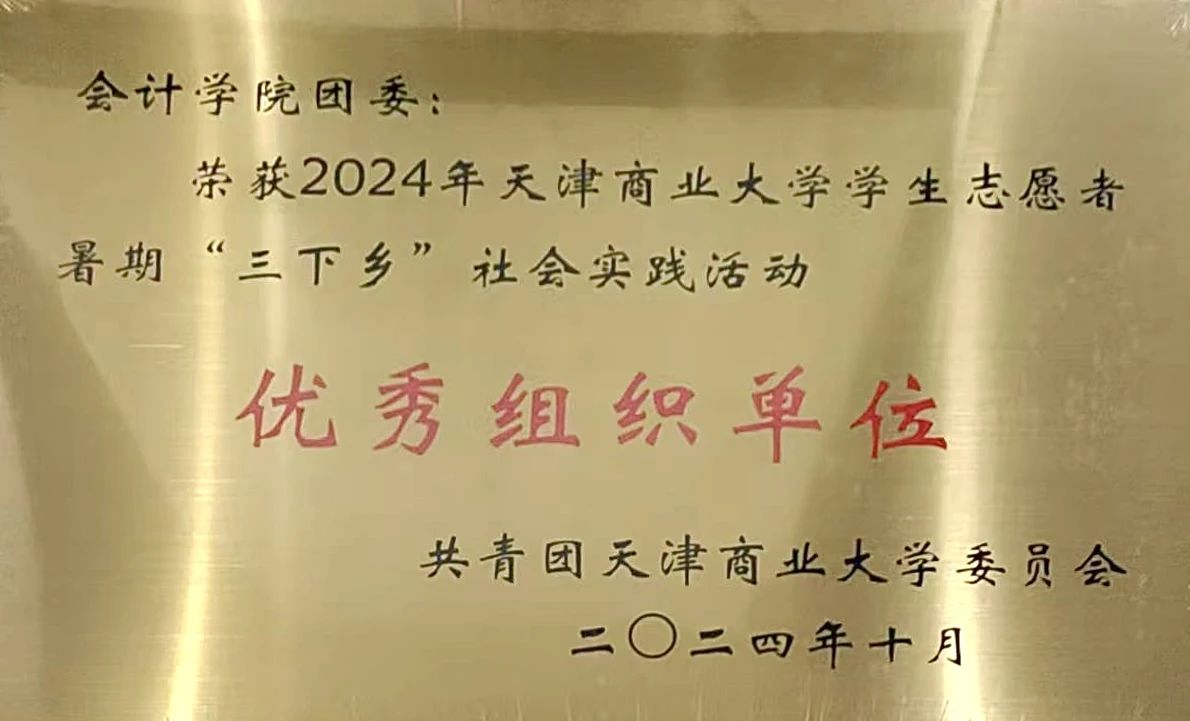 会计学院团委：
荣获2024年天津商业大学学生志愿者
暑期“三下乡”社会实践活动
优秀组织单位
共青团天津商业大学委员会
二〇二四年十月